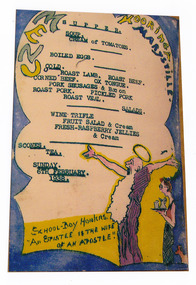 MENU
MOORING
MAPOSTLE
SUPPER.
SOUP.
CREAM of TOMATOES.
BOILED EGGS.
COLD.
ROAST LAMB. ROAST BEEF.
CORNED BEEF. OX TONGUE.
PORK SAUSAGES & Bacon
ROAST PORK. PICKLED PORK
ROAST VEAL.
SALADS.
WINE TRIFLE
FRUIT SALAD & Cream
FRESH-RASPBERRY JELLIES
& Cream
SCONES.
TEA.
SUNDAY.
6TH FEBRUARY.
1938.
SCHOOL-BOY HOWLERS.
"AN EPISTLE IS THE WIFE
OF AN APOSTLE".